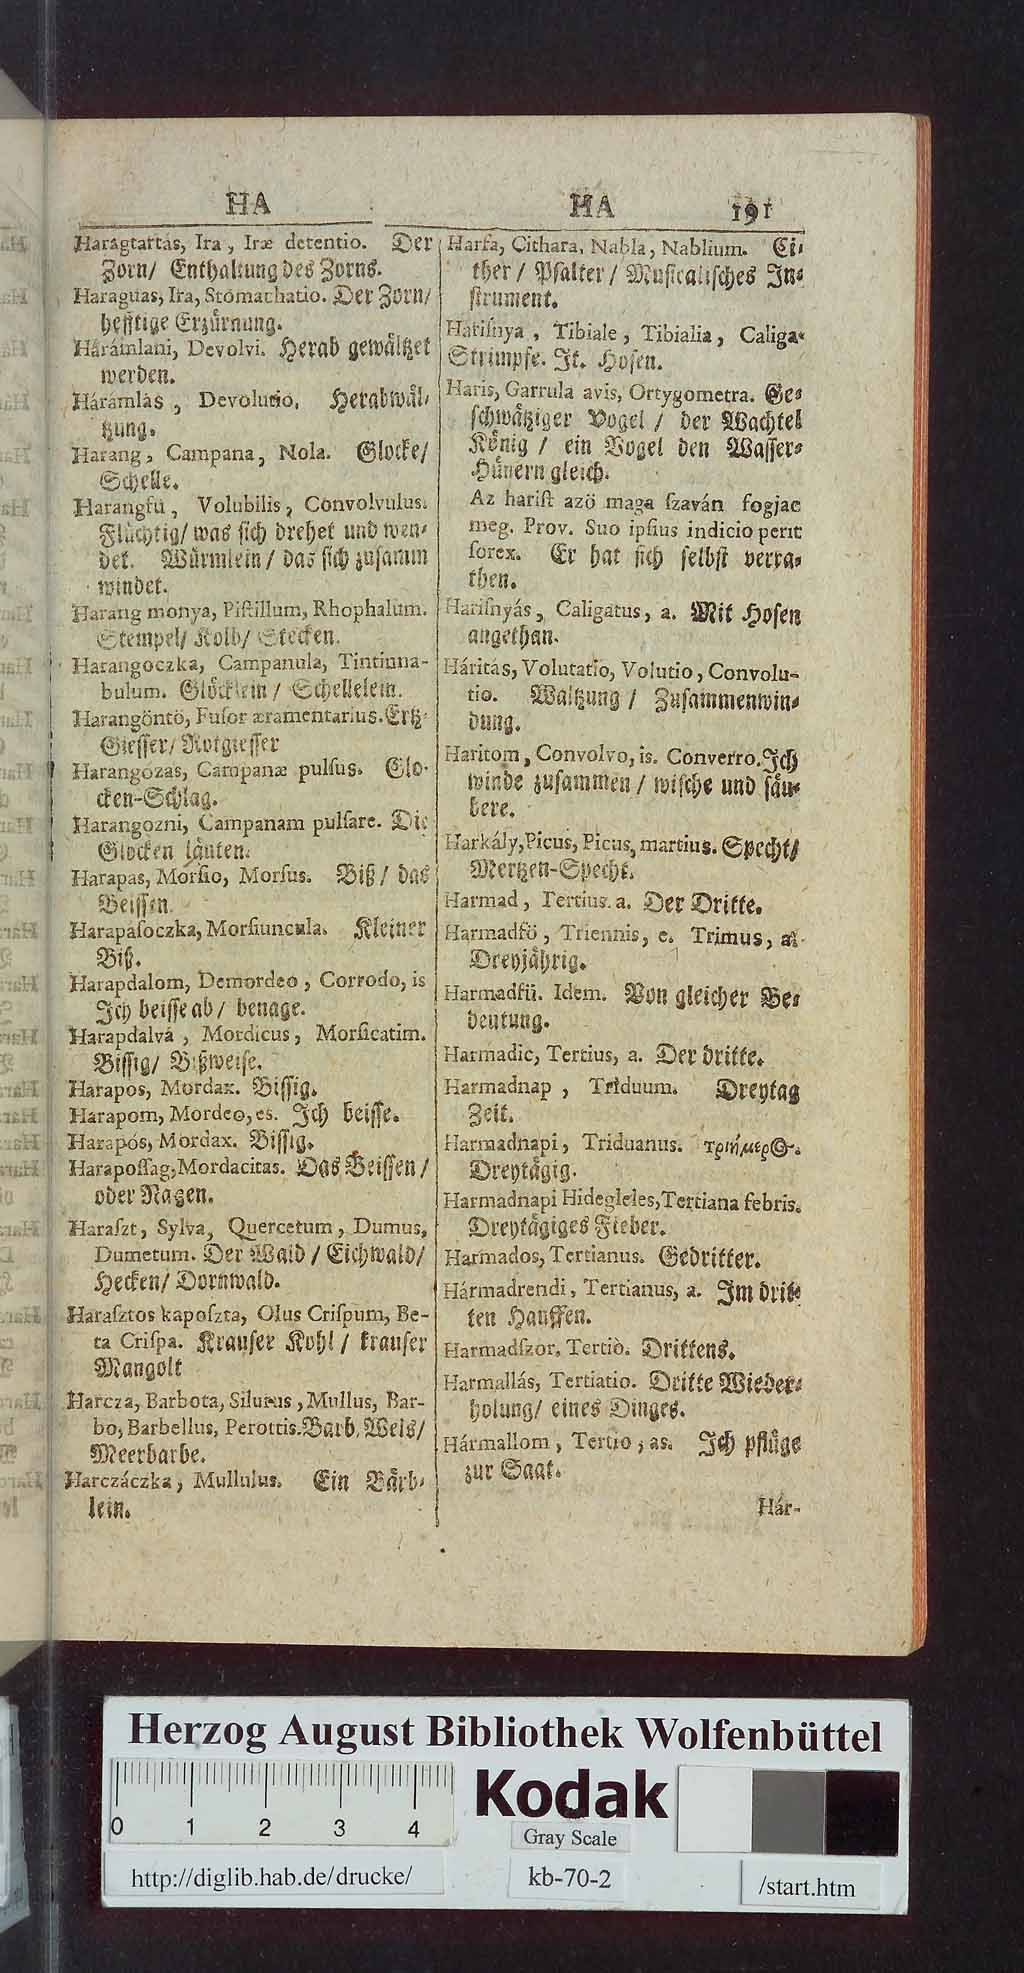 HA
Haragtartás, Ira, Iræ detentio. Der
Zorn/ Enthaltung des Zorns.
Haraguas, Ira, Stomachatio. Der Zorn/
hefftige Erzürnung.
Hárámlani, Devolvi. Herab gewältzet
werden.
Hárámlás, Devolutio. Herabwäl-
tzung.
Harang, Campana, Nola. Glocke/
Schelle.
Harangfü, Volubilis, Convolvulus.
Flüchtig/ was sich drehet und wen-
det. Würmlein/ das sich zusamm
windet.
Harang monya, Piſtillum, Rhophalum.
Stempel/ Kolb/ Stecken.
Harangoczka, Campanula, Tintinna-
bulum. Glöcklein/ Schellelein.
Harangöntö, Fuſor æramentarius. Ertz-
Giesser/ Rotgiesser
Harangozas, Campanæ pulſus. Glo-
cken-Schlag.
Harangozni, Campanam pulſare. Die
Glocken läuten.
Harapas, Morſio, Morſus. Biß/ das
Beissen.
Harapáſoczka, Morſiuncula. Kleiner
Biß.
Harapdalom, Demordeo, Corrodo, is
Ich beisse ab/ benage.
Harapdalvá, Mordicus, Morſicatim.
Bissig/ Bißweise.
Harapos, Mordax. Bissig.
Harapom, Mordeo, es. Ich beisse.
Harapós, Mordax. Bissig.
Harapoſſag, Mordacitas. Das Beissen/
oder Nagen.
Haraſzt, Sylva, Quercetum, Dumus,
Dumetum. Der Wald/ Eichwald/
Hecken/ Dornwald.
Haraſztos kapoſzta, Olus Criſpum, Be-
ta Criſpa. Krauser Kohl/ krauser
Mangolt
Harcza, Barbota, Silurus, Mullus, Bar-
bo, Barbellus, Perottis. Barb, Wels/
Meerbarbe.
Harczáczka, Mullulus. Ein Bärb-
lein.
HA 191
Harfa, Cithara, Nabla, Nablium. Ci-
ther/ Psalter/ Musicalisches In-
strument.
Hariſnya, Tibiale, Tibialia, Caliga-
Strimpfe. It. Hosen.
Haris, Garrula avis, Ortygometra. Ge-
schwätziger Vogel/ der Wachtel
König/ ein Vogel den Wasser-
Hünern gleich.
Az hariſt azö maga ſzaván fogjac
meg. Prov. Suo ipſius indicio perit
ſorex. Er hat sich selbst verra-
then.
Hariſnyás, Caligatus, a. Mit Hosen
angethan.
Háritás, Volutatio, Volutio, Convolu-
tio. Waltzung/ Zusammenwin-
dung.
Haritom, Convolvo, is. Converro. Ich
winde zusammen/ wische und säu-
bere.
Harkály, Picus, Picus, martius. Specht/
Mertzen-Specht.
Harmad, Tertius. a. Der Dritte.
Harmadfö, Triennis, e. Trimus, a.
Dreyjährig.
Harmadfü. Idem. Von gleicher Be-
deutung.
Harmadic, Tertius, a. Der dritte.
Harmadnap, Triduum. Dreytag
Zeit.
Harmadnapi, Triduanus. τριήμερ&.
Dreytägig.
Harmadnapi Hidegleles, Tertiana febris.
Dreytägiges Fieber.
Harmados, Tertianus. Gedritter.
Hármadrendi, Tertianus, a. Im drit-
ten Hauffen.
Harmadſzor, Tertiò. Drittens.
Harmallás, Tertiatio. Dritte Wieder-
holung/ eines Dinges.
Hármallom, Tertio, as. Ich pflüge
zur Saat.
Hár-
Herzog August Bibliothek Wolfenbüttel
0 1 2 3 4
Kodak
Gray Scale
http://diglib.hab.de/drucke/
kb-70-2
/start.htm